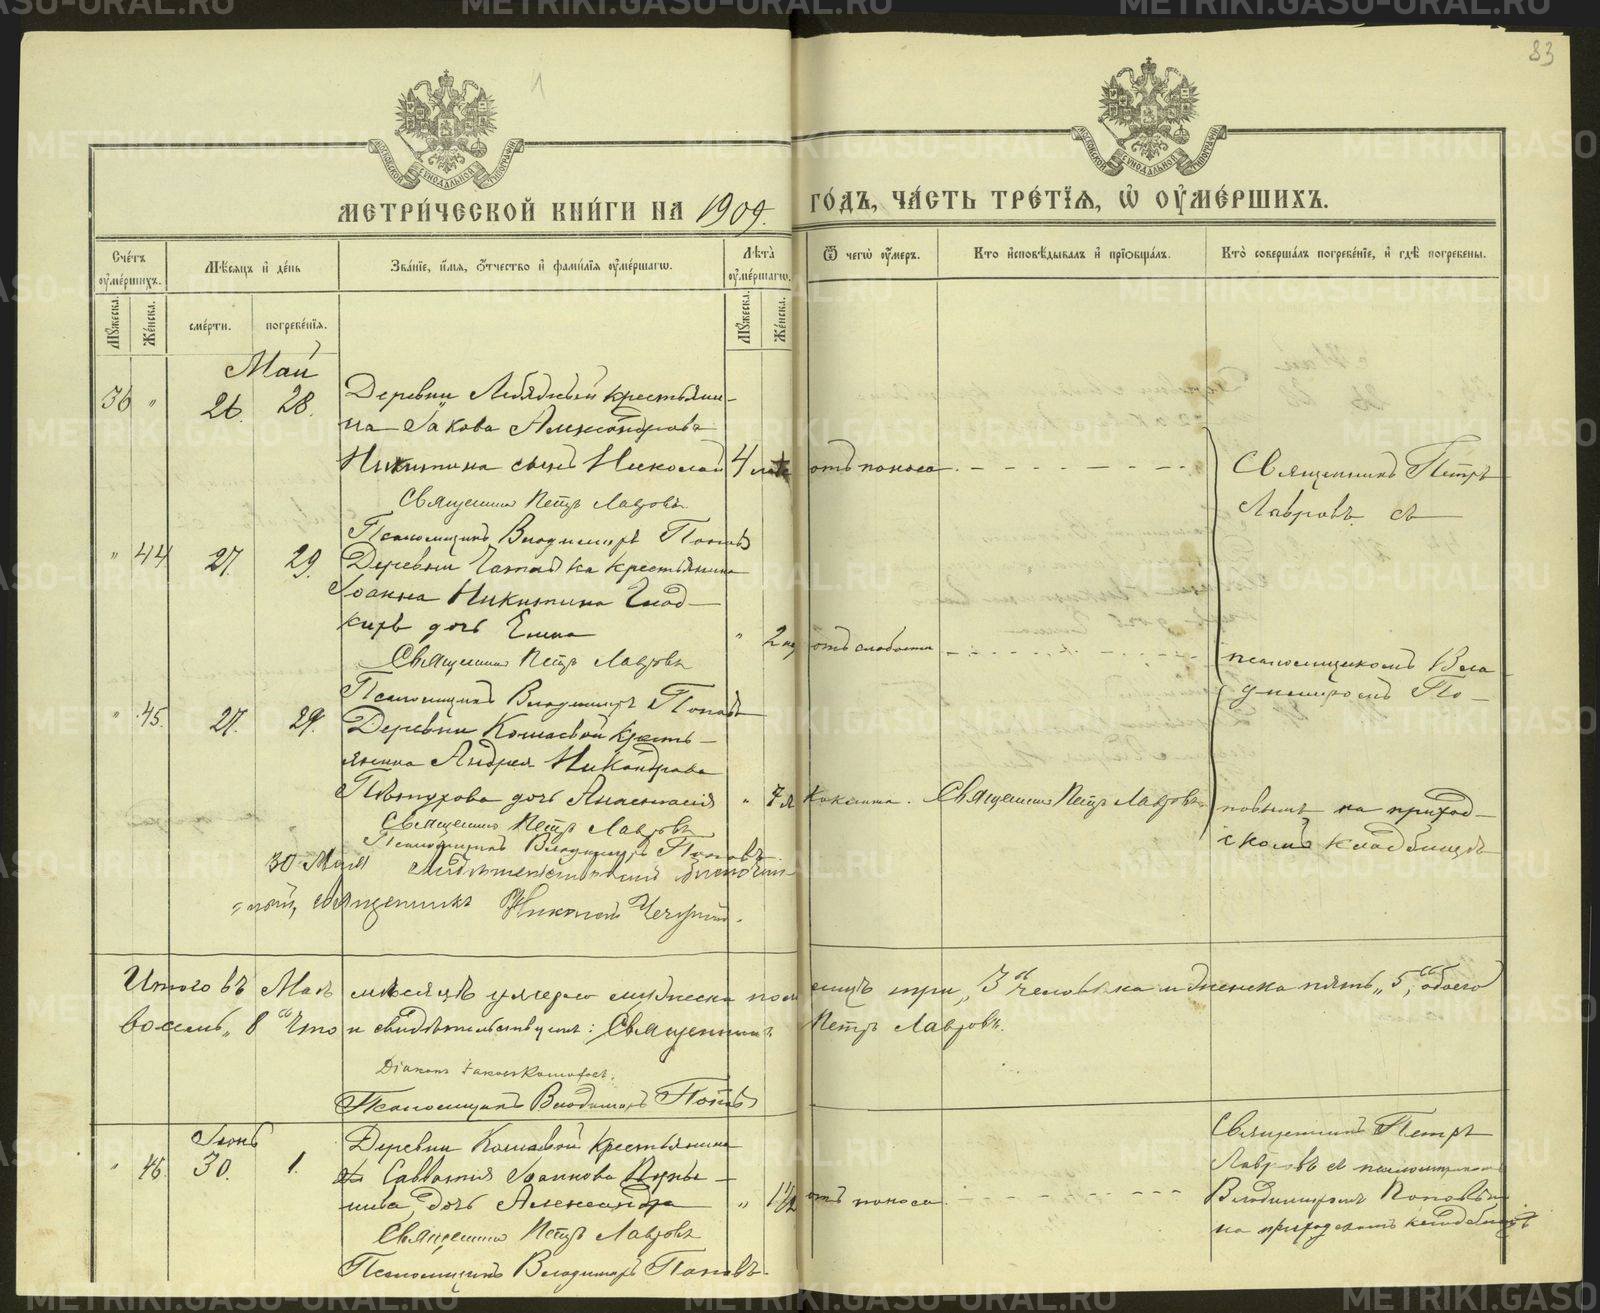 83
МЕТРИЧЕСКОЙ КНИГИ НА 1909 ГОДЪ, ЧАСТЬ ТРЕТІЯ, Ѿ ОУМЕРШИХЪ.
Счетъ оумершихъ.
Мѣсяцъ и день
Званіе, имя, отчество и фамилія оумершагѡ.
Лѣта оумершагѡ.
Ѿ чегѡ оумеръ.
Кто исповѣдывалъ и пріобщалъ.
Кто совершалъ погребеніе, и гдѣ погребены.
Мужеска. Женска.
смерти. погребенія.
Мужеска. Женска.
Май
36 " 26. 28. Деревни Лебяжьей крестьяни-
на Іакова Александрова
Никитина сынъ Николай 4 отъ поноса
Священникъ Петръ Лавровъ
Псаломщикъ Владимиръ Поповъ
" 44 27. 29. Деревни крестьянина
Іоанна Никитина Глад-
кихъ дочь Елена " 2 отъ слабости
Священникъ Петръ Лавровъ
Псаломщикъ Владимиръ Поповъ
" 45. 27. 29. Деревни Кошаевой кресть-
янина Андрея Никандрова
дочь Анастасія " 7 Священникъ Петръ Лавровъ
Священникъ Петръ Лавровъ
Псаломщикъ Владимиръ Поповъ
Священникъ Петръ
Лавровъ съ
псаломщикомъ Вла
димиромъ По-
повымъ на приход-
скомъ кладбищѣ
30 Мая
священникъ Николай
Итого въ Маѣ мѣсяцѣ умерло мужеска пола три "3" человѣка и женска пять "5", обоего
восемь "8" Что и свидѣтельствуемъ: Священникъ Петръ Лавровъ.
Діаконъ Іаковъ
Псаломщикъ Владимиръ Поповъ
Іюнь
" 46. 30. 1. Деревни Кошаевой крестьянина
Савватія Іоаннова
дочь Александра " 1½ отъ поноса
Священникъ Петръ Лавровъ
Псаломщикъ Владимиръ Поповъ.
Священникъ Петръ
Лавровъ съ псаломщикомъ
Владимиромъ Поповымъ
на приходскомъ кладбищѣ
METRIKI.GASO-URAL.RU